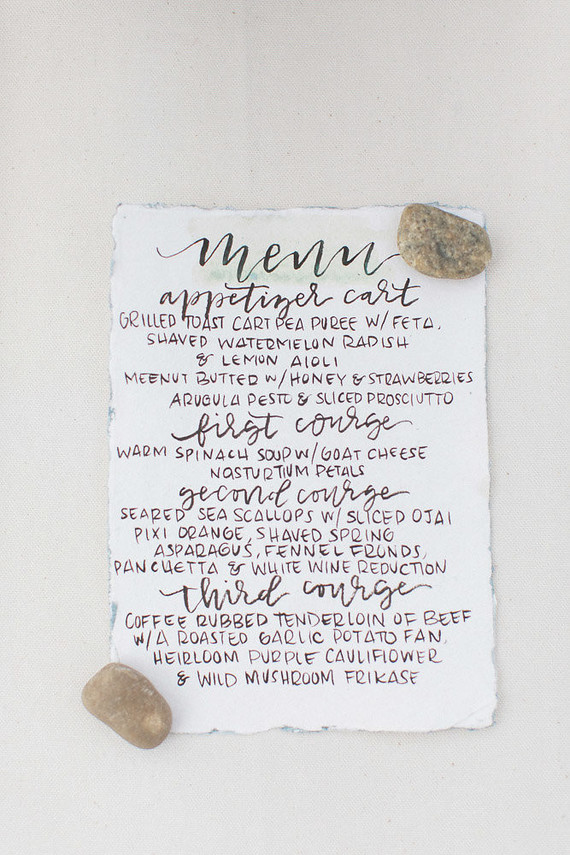 menu
appetizer cart
GRILLED TOAST CART PEA PUREE W/ FETA,
SHAVED WATERMELON RADISH
& LEMON AIOLI
MEENUT BUTTER W/ HONEY & STRAWBERRIES
ARUGULA PESTO & SLICED PROSCIUTTO
first course
WARM SPINACH SOUP W/ GOAT CHEESE
NASTURTIUM PETALS
second course
SEARED SEA SCALLOPS W/ SLICED OJAI
PIXI ORANGE, SHAVED SPRING
ASPARAGUS, FENNEL FRONDS,
PANCHETTA & WHITE WINE REDUCTION
third course
COFFEE RUBBED TENDERLOIN OF BEEF
W/ A ROASTED GARLIC POTATO FAN,
HEIRLOOM PURPLE CAULIFLOWER
& WILD MUSHROOM FRIKASE